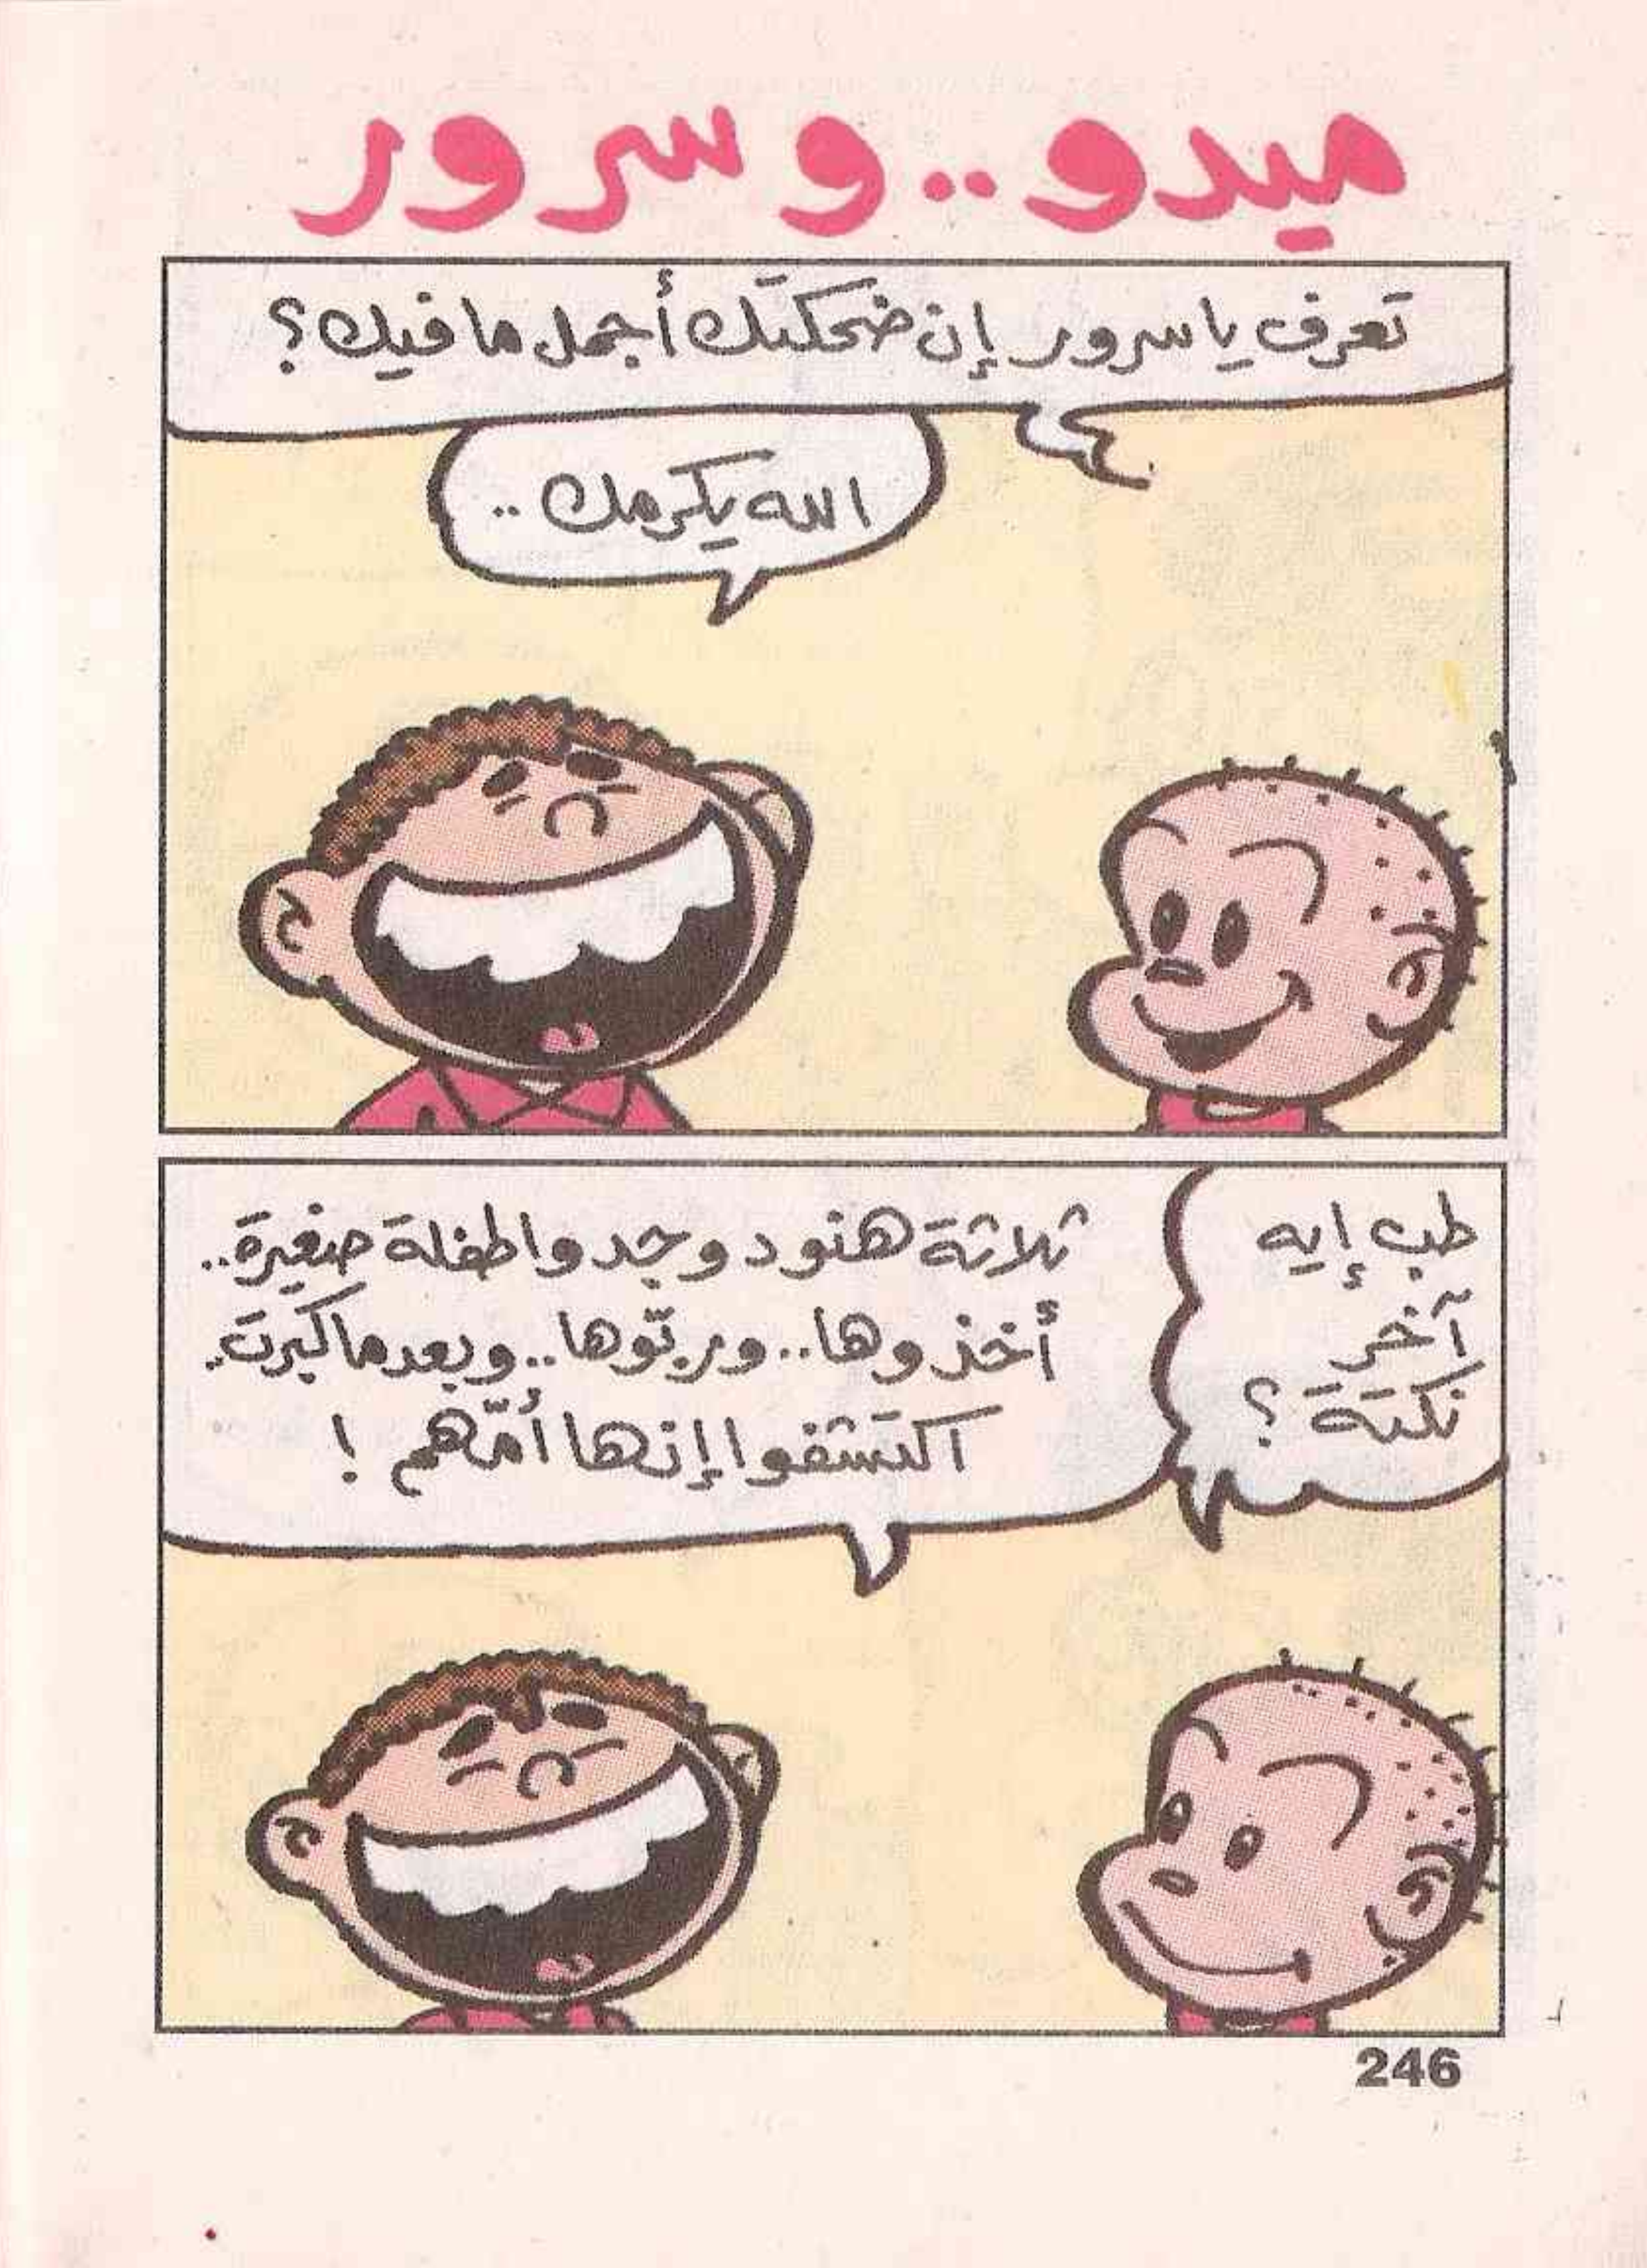 ميدو..وسرور
تعرف ياسرور إن ضحكتك أجمل مافيك؟
الله يكرمك ..
طب إيه
آخر
نكتة ؟
ثلاثة هنود وجدوا طفلة صغيرة..
أخذوها..وربّوها..وبعدما كبرت..
اكتشفوا إنها أمّهم !
246